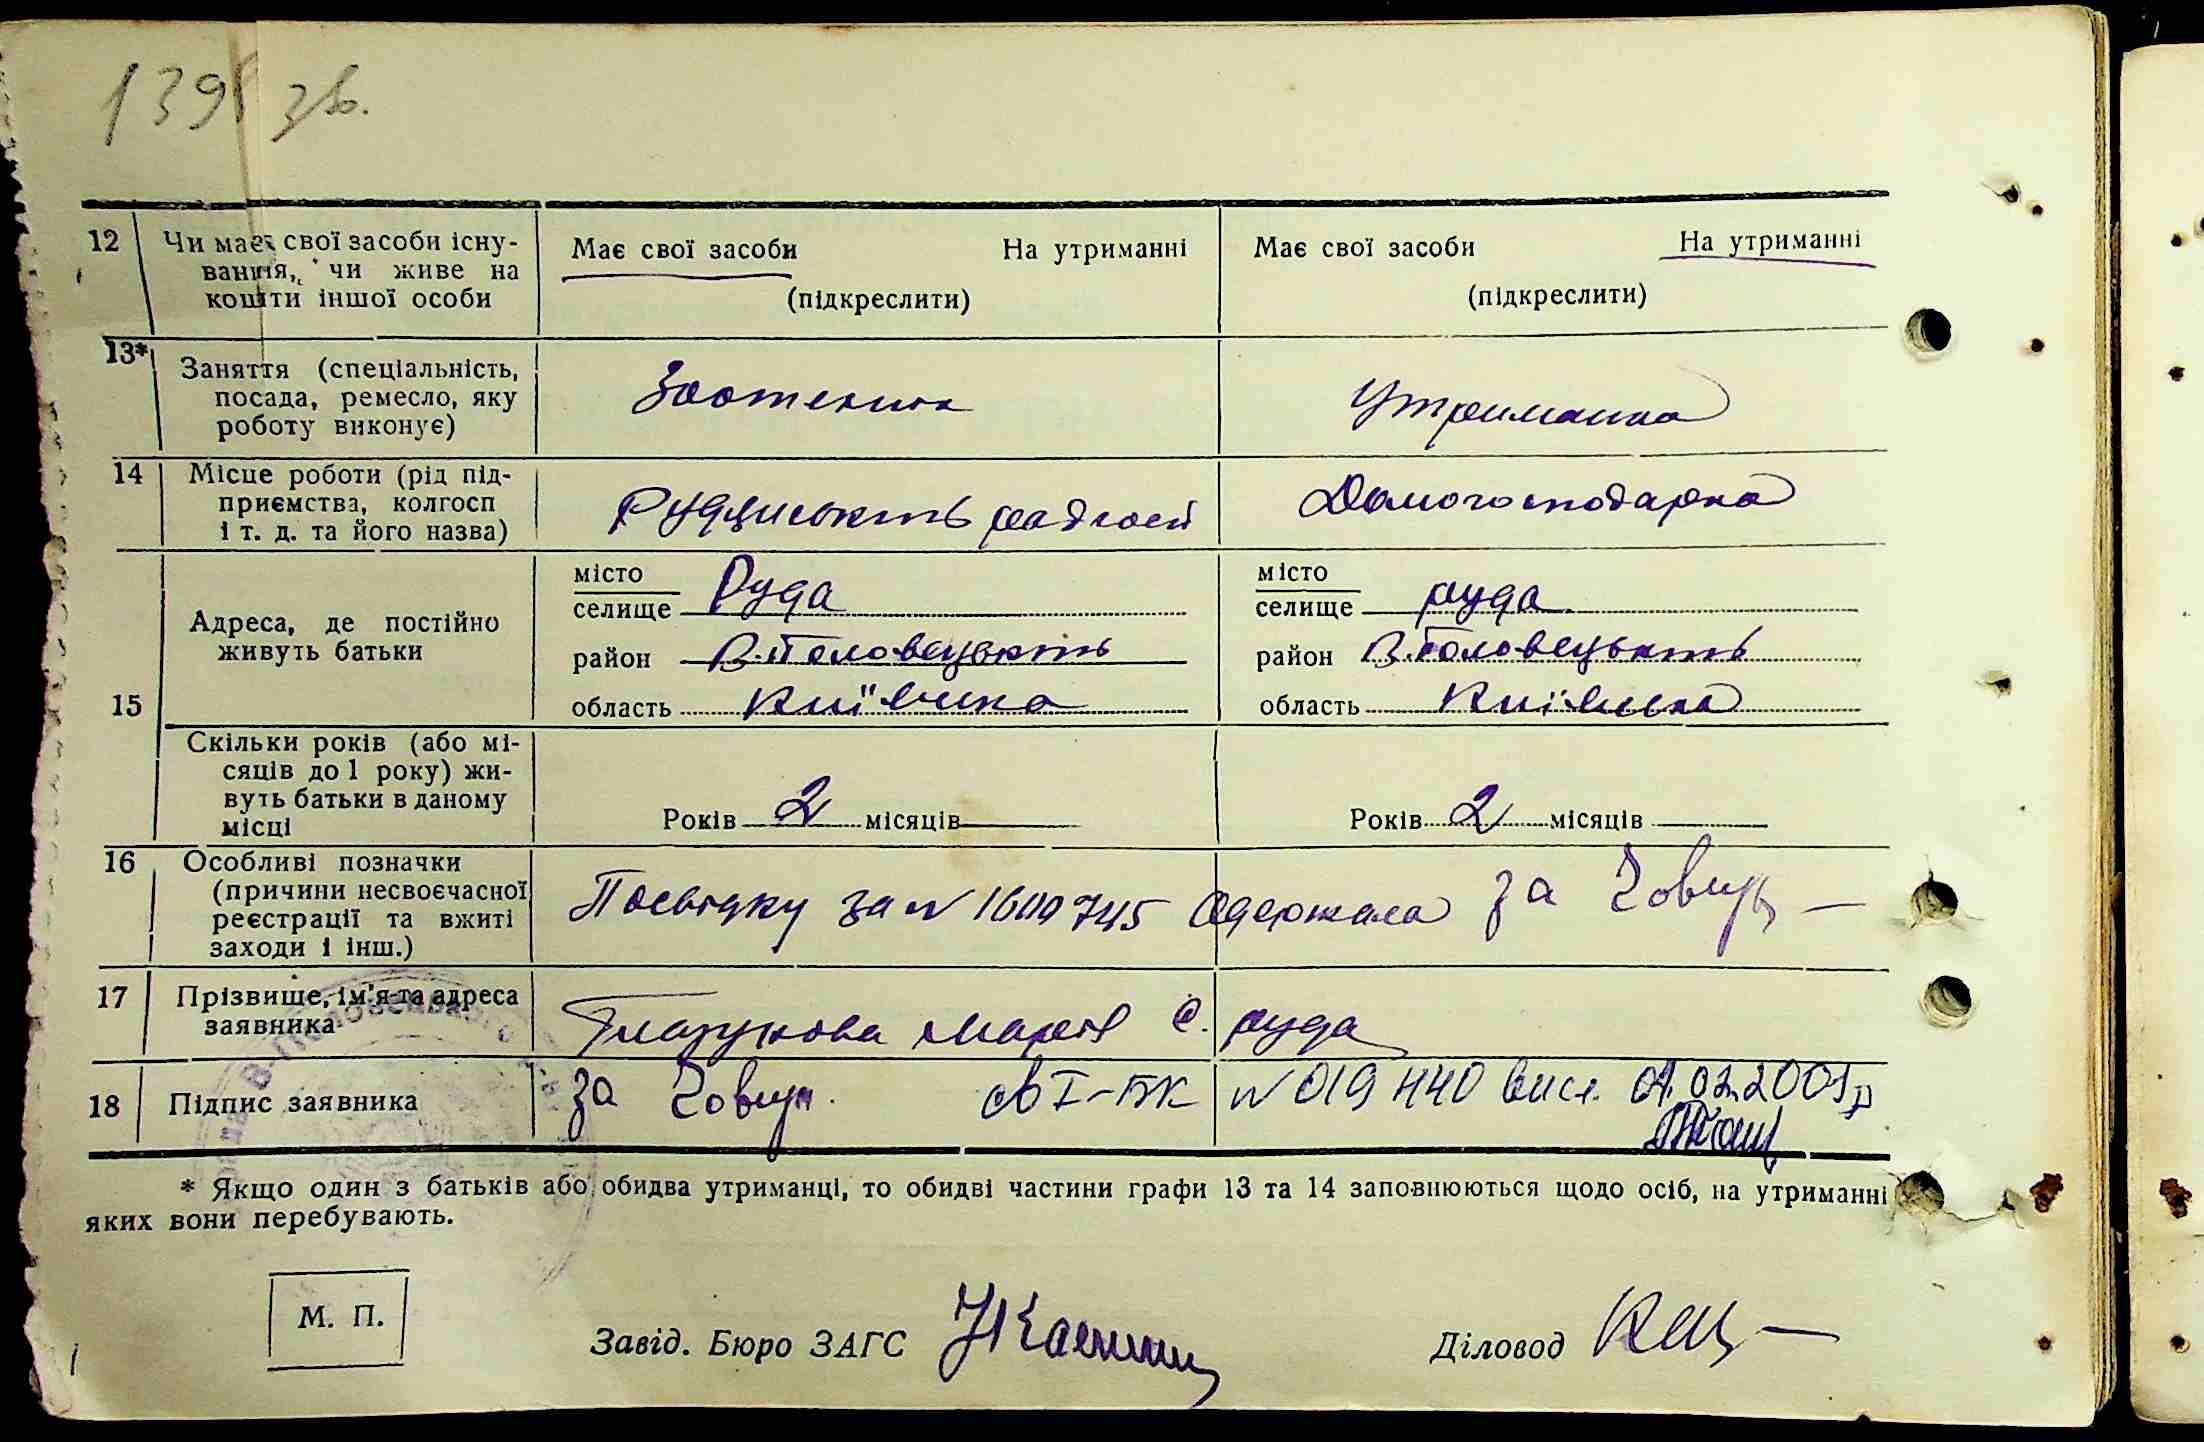 139 зв.
12 Чи має свої засоби існу-
вання, чи живе на
кошти іншої особи
Має свої засоби На утриманні
(підкреслити)
Має свої засоби На утриманні
(підкреслити)
13* Заняття (спеціальність,
посада, ремесло, яку
роботу виконує)
Зоотехнік
Утриманка
14 Місце роботи (рід під-
приємства, колгосп
і т. д. та його назва)
Рудиський радгосп
Домогосподарка
15 Адреса, де постійно
живуть батьки
місто
селище Руда
район В.Половецький
область Київська
місто
селище руда
район В.Половецький
область Київська
Скільки років (або мі-
сяців до 1 року) жи-
вуть батьки в даному
місці
Років 2 місяців
Років 2 місяців
16 Особливі позначки
(причини несвоєчасної
реєстрації та вжиті
заходи і інш.)
Посвідку за № 1600745 одержала за
17 Прізвище, ім'я та адреса
заявника
Глазунова Марія с. руда
18 Підпис заявника
за І-БК № 019440 вис. 01.02.2001р
* Якщо один з батьків або обидва утриманці, то обидві частини графи 13 та 14 заповнюються щодо осіб, на утриманні
яких вони перебувають.
М. П.
Завід. Бюро ЗАГС
Діловод